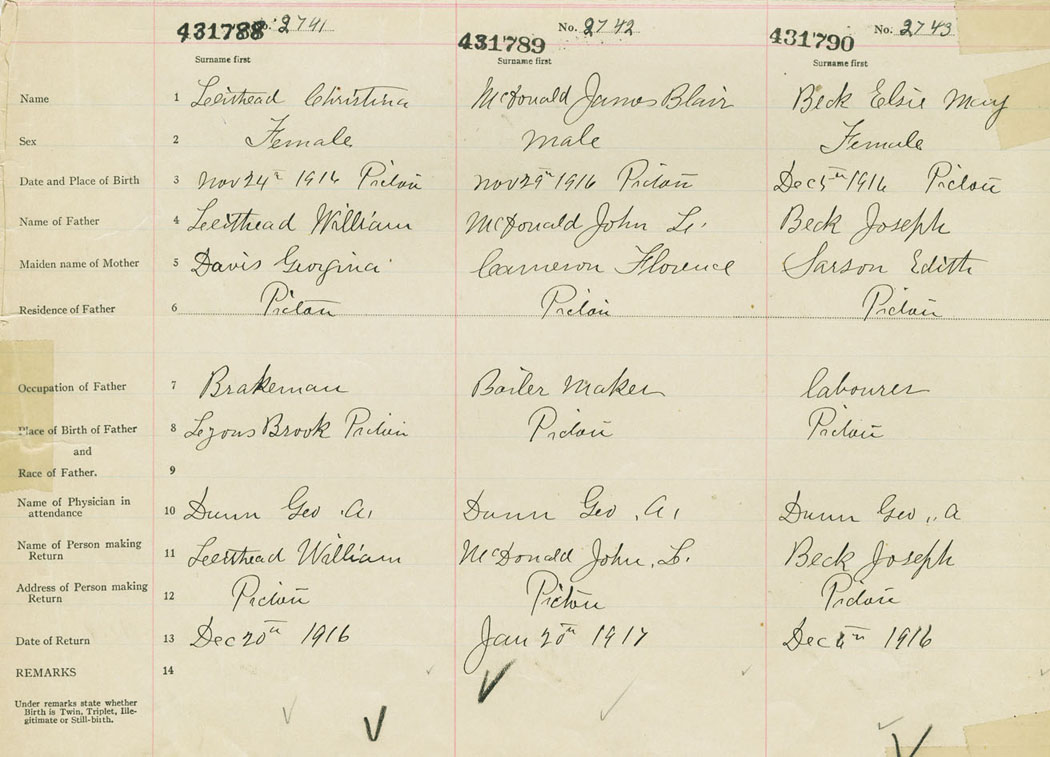 431788 No. 2741 431789 No. 2742 431790 No. 2743
Surname first Surname first Surname first
Name 1 Leithead Christina McDonald James Blair Beck Elsie May
Sex 2 Female male Female
Date and Place of Birth 3 Nov 24th 1916 Pictou Nov 29th 1916 Pictou Dec 5th 1916 Pictou
Name of Father 4 Leithead William McDonald John L. Beck Joseph
Maiden name of Mother 5 Davis Georgina Cameron Florence Sarson Edith
Residence of Father 6 Pictou Pictou Pictou
Occupation of Father 7 Brakeman Boiler Maker labourer
Place of Birth of Father 8 Lyons Brook Pictou Pictou Pictou
and
Race of Father. 9
Name of Physician in
attendance 10 Dunn Geo. A. Dunn Geo. A. Dunn Geo. A
Name of Person making
Return 11 Leithead William McDonald John. L. Beck Joseph
Address of Person making
Return 12 Pictou Pictou Pictou
Date of Return 13 Dec 20th 1916 Jan 20th 1917 Dec 6th 1916
REMARKS 14
Under remarks state whether
Birth is Twin, Triplet, Ille-
gitimate or Still-birth.